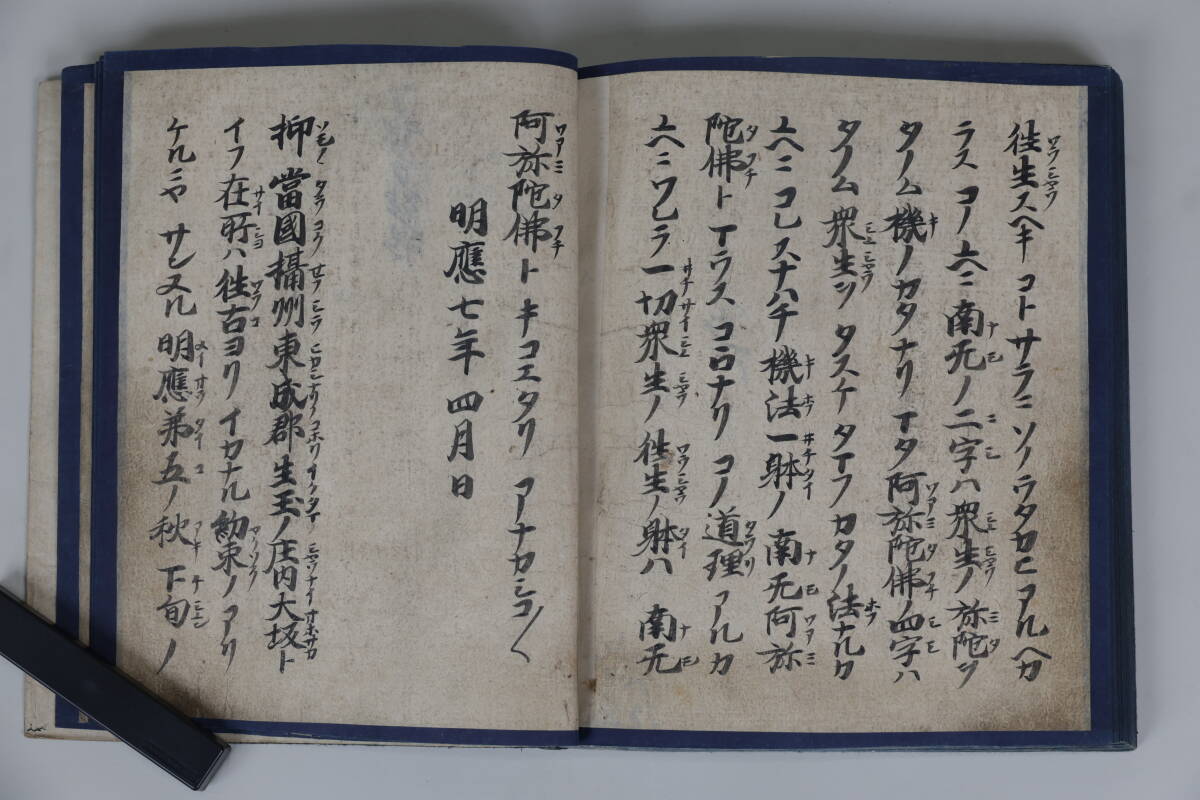 往生スヘキコトサラニソノウタカヒアルヘカ
ラスコノユヘニ南无ノ二字ハ衆生ノ弥陀ヲ
タノム機ノカタナリマタ阿弥陀佛ノ四字ハ
タノム衆生ヲタスケタマフカタノ法ナルカ
ユヘニコレスナハチ機法一躰ノ南无阿弥
陀佛トマウスココロナリコノ道理アルカ
ユヘニワレラ一切衆生ノ往生ノ躰ハ南无
阿弥陀佛トキコエタリアナカシコ〳〵
明應七年四月日
抑當國攝州東成郡生玉ノ庄内大坂ト
イフ在所ハ往古ヨリイカナル約束ノアリ
ケルニヤサンヌル明應第五ノ秋下旬ノ